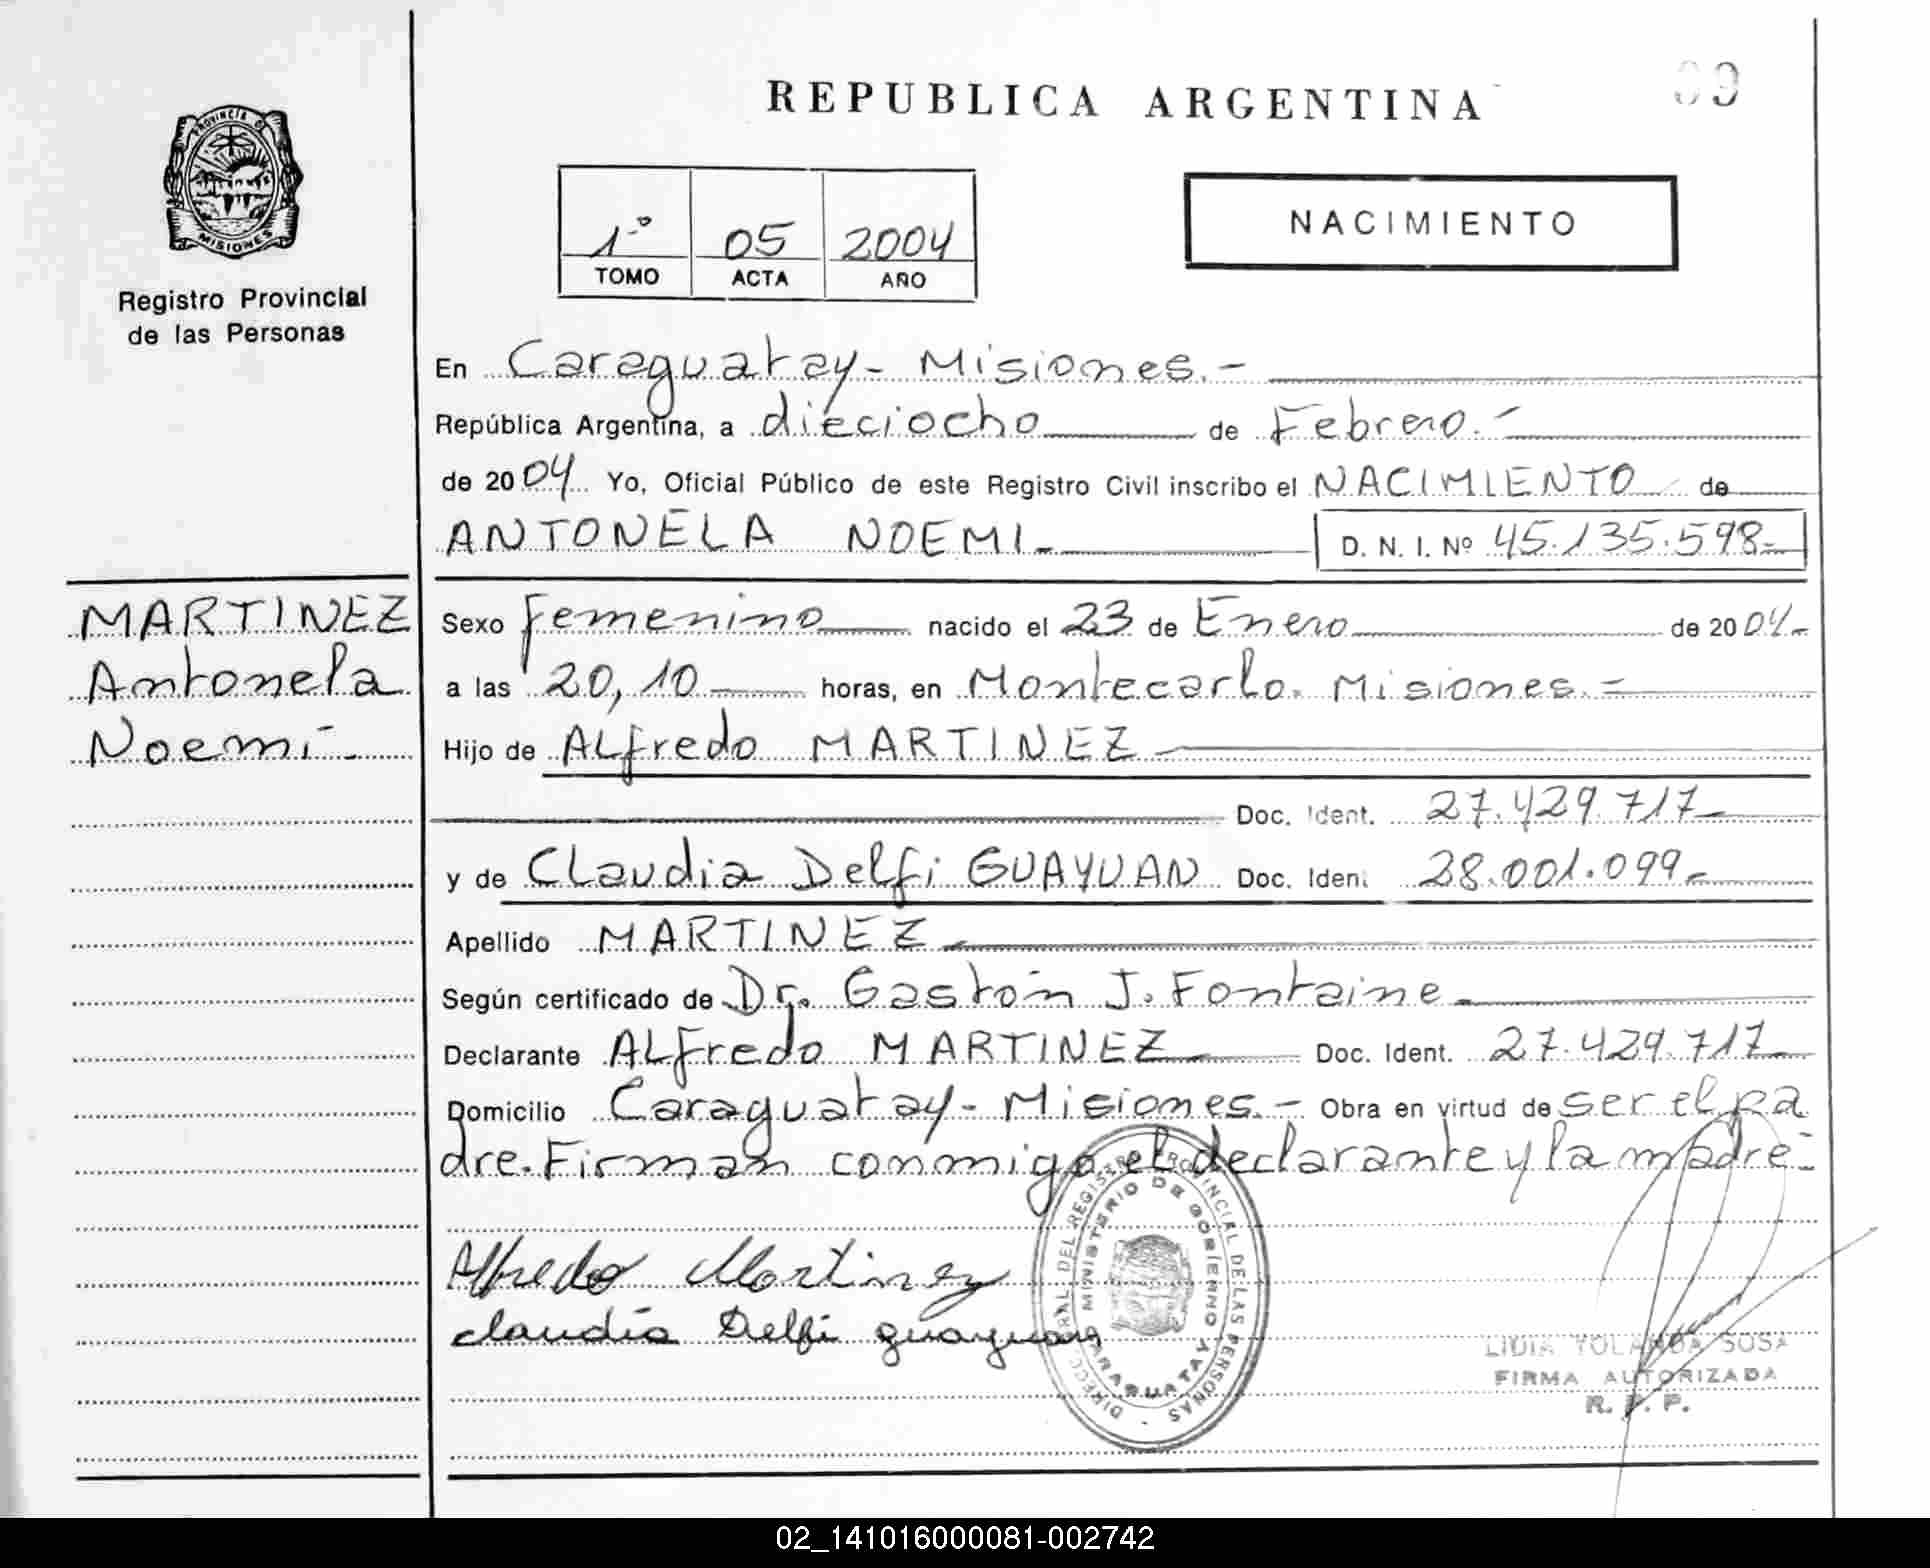 REPUBLICA ARGENTINA
09
PROVINCIA DE
MISIONES
Registro Provincial
de las Personas
1º 05 2004
TOMO ACTA AÑO
NACIMIENTO
En Caraguatay - Misiones. -
República Argentina, a dieciocho de Febrero. -
de 2004 Yo, Oficial Público de este Registro Civil inscribo el NACIMIENTO de
ANTONELA NOEMI.- D. N. I. Nº 45.135.598-
MARTINEZ
Antonela
Noemí -
Sexo femenino nacido el 23 de Enero de 2004-
a las 20,10 horas, en Montecarlo. Misiones. -
Hijo de ALfredo MARTINEZ
Doc. Ident. 27.429.717-
y de CLaudia Delfi GUAYUAN Doc. Iden. 28.001.099-
Apellido MARTINEZ
Según certificado de Dr. Gastón J. Fontaine.
Declarante ALfredo MARTINEZ Doc. Ident. 27.429.717-
Domicilio Caraguatay - Misiones. - Obra en virtud de ser el pa
dre. Firman conmigo el declarante y la madre -
Alfredo Martinez
claudia Delfi guayuan
DIRECC. GRAL. DEL REGISTRO PROVINCIAL DE LAS PERSONAS -
MINISTERIO DE GOBIERNO
CARAGUATAY
LIDIA YOLANDA SOSA
FIRMA AUTORIZADA
R. P. P.
02_141016000081-002742